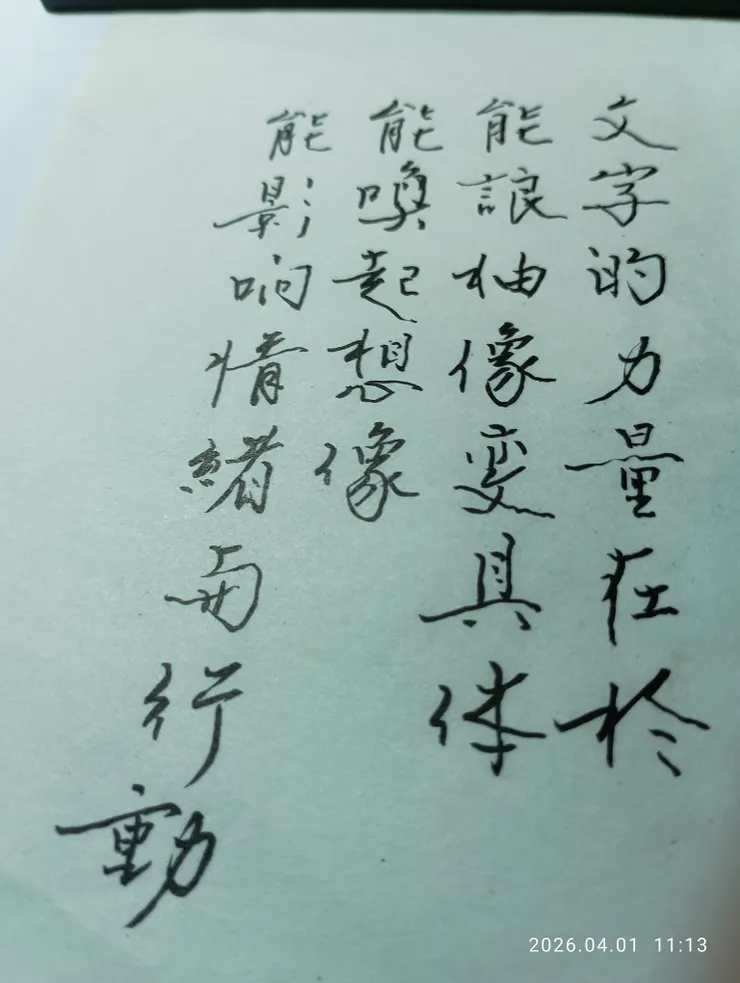 文字的力量在於
能誏抽像变具体
能喚起想像
能影响情緒与行動
2026.04.01 11:13